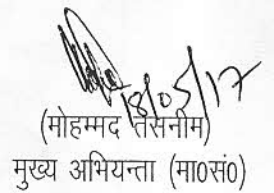 18/05/17
(मोहम्मद तसनीम)
मुख्य अभियन्ता (मा0सं0)